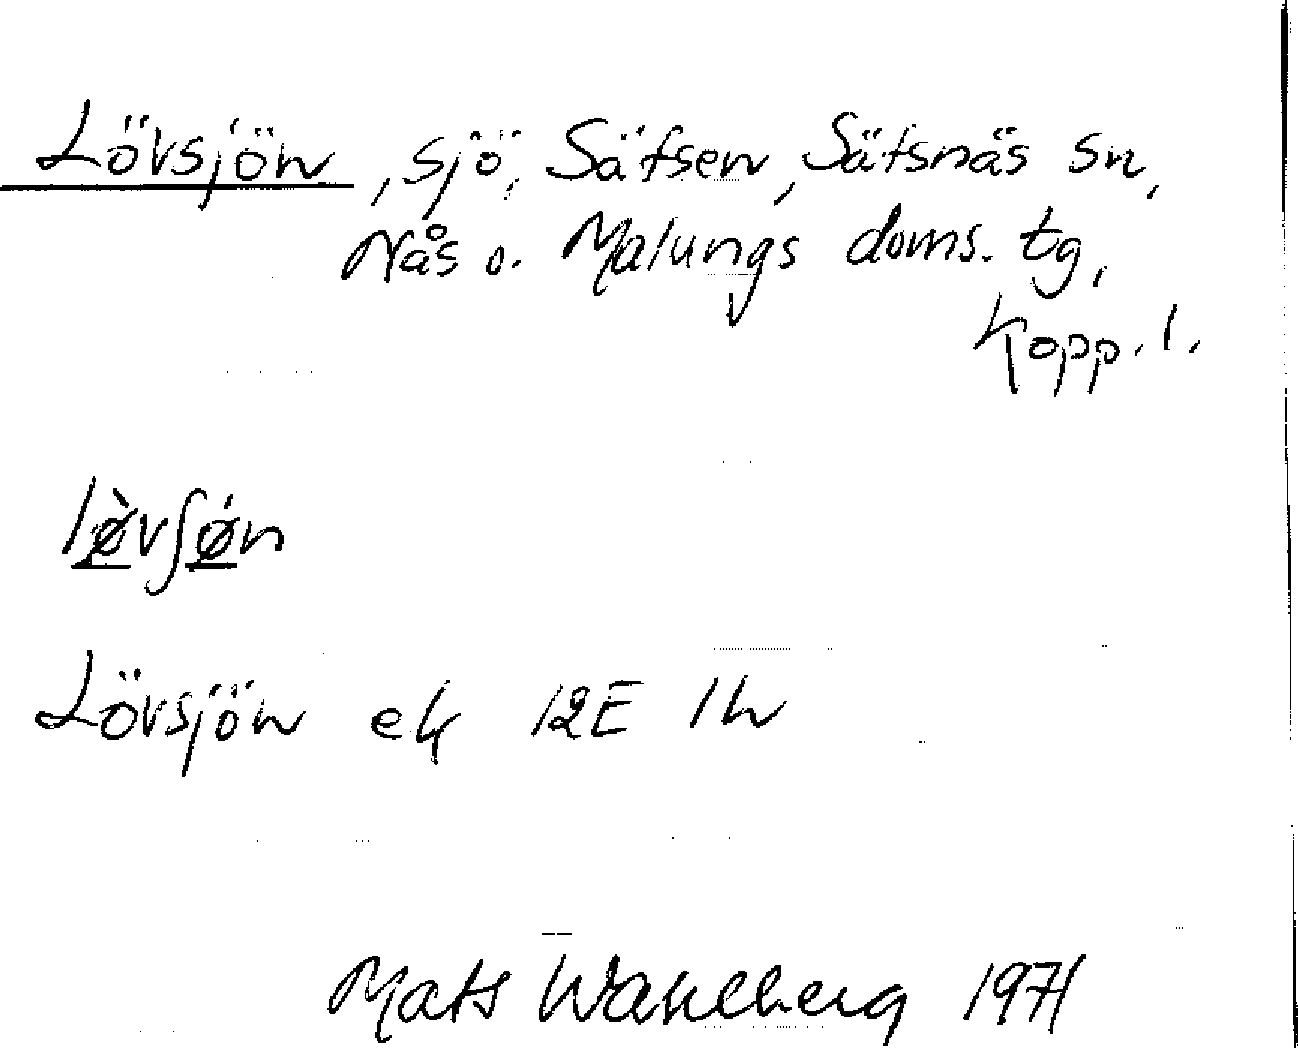 Lövsjön, sjö, Säfsen, Säfsnäs sn,
Nås o. Malungs doms. tg,
Kopp. l.
lø̀vʃø̀n
Lövsjön ek 12E 1h
Mats Wahlberg 1971